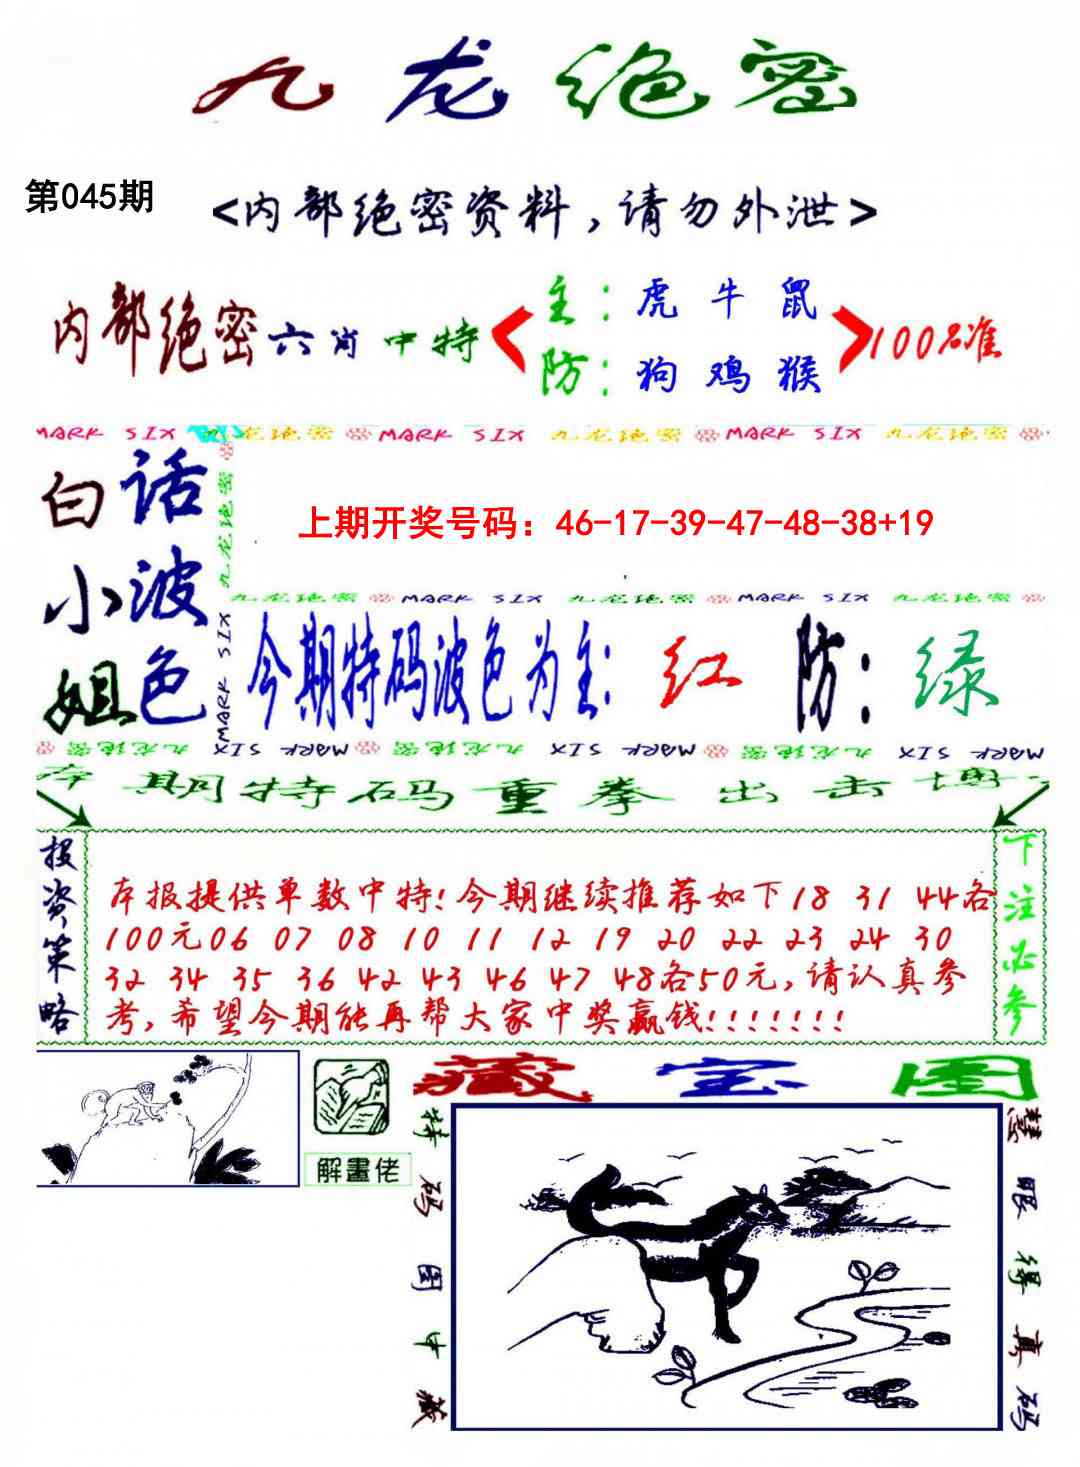 九龙绝密
第045期
<内部绝密资料,请勿外泄>
内部绝密六肖中特
主:虎 牛 鼠
防:狗 鸡 猴
100%准
MARK SIX 九龙绝密 MARK SIX 九龙绝密 MARK SIX 九龙绝密
白小姐
话波色
九龙绝密
MARK SIX
上期开奖号码：46-17-39-47-48-38+19
九龙绝密 MARK SIX 九龙绝密 MARK SIX 九龙绝密
今期特码波色为主:红 防:绿
九龙绝密 MARK SIX 九龙绝密 MARK SIX 九龙绝密 MARK SIX
本期特码重拳出击博
投资策略
本报提供单数中特!今期继续推荐如下18 31 44各
100元06 07 08 10 11 12 19 20 22 23 24 30
32 34 35 36 42 43 46 47 48各50元,请认真参
考,希望今期能再帮大家中奖赢钱!!!!!!!
下注必参
解畫佬
藏宝图
特码图中藏
慧眼得真码